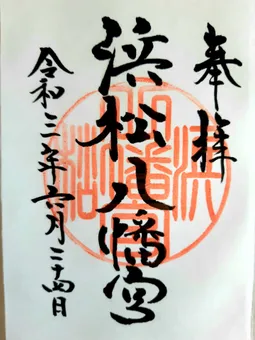 奉拝
浜松八幡宮
令和三年六月二十四日